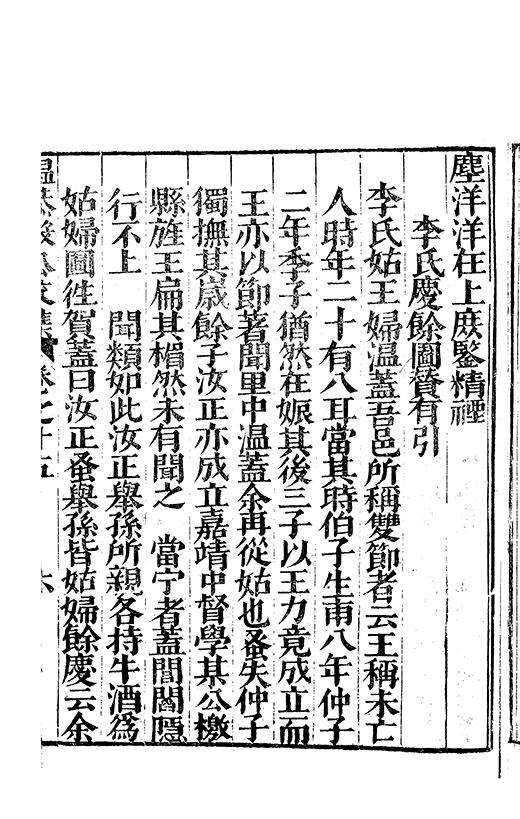 塵洋洋在上庶鑒精禋
李氏慶餘圖贊有引
李氏姑王婦溫蓋吾邑所稱雙節者云王稱未亡
人時年二十有八耳當其時伯子生甫八年仲子
二年季子猶然在娠其後三子以王力竟成立而
王亦以節著聞里中溫蓋余再從姑也蚤失仲子
獨撫其歲餘子汝正亦成立嘉靖中督學某公檄
縣旌王扁其楣然未有聞之　當宁者蓋閭閻隱
行不上　聞類如此汝正舉孫所親各持牛酒為
姑婦圖徃賀蓋曰汝正蚤舉孫皆姑婦餘慶云余
溫恭毅公文集　卷之十五　六